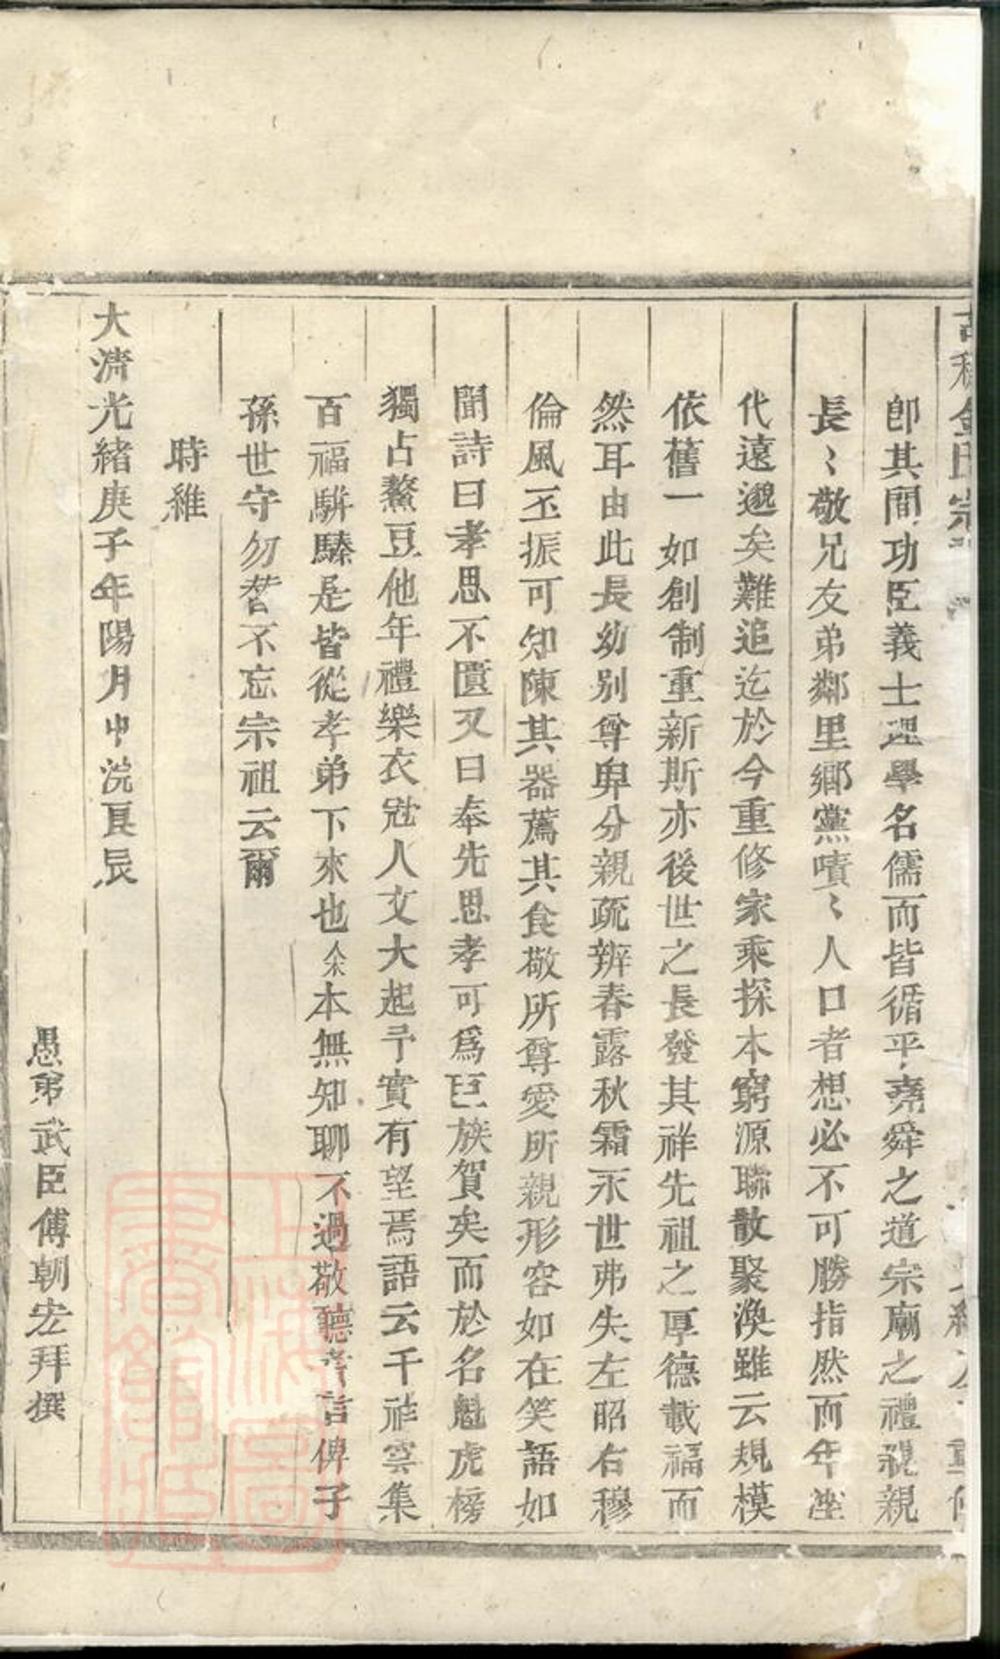 金氏宗
卽其間功臣義士理學名儒而皆循乎堯舜之道宗廟之禮親親
長〻敬兄友弟鄰里鄉黨嘖〻人口者想必不可勝指然而年湮
代遠邈矣難追迄於今重修家乘探本窮源聯散聚渙雖云規模
依舊一如創制重新斯亦後世之長發其祥先祖之厚德載福而
然耳由此長幼别尊卑分親疏辨春露秋霜永世弗失左昭右穆
倫風丕振可知陳其器薦其食敬所尊愛所親形容如在笑語如
聞詩曰孝思不匱又曰奉先思孝可爲巨族賀矣而於名魁虎榜
獨占鰲豆他年禮樂衣冠人文大起予實有望焉語云千祥雲集
百福駢臻是皆從孝弟下來也余本無知聊不過敬聽耆言俾子
孫世守勿替不忘宗祖云爾
時維
大清光緒庚子年陽月中浣良辰
愚弟武臣傅朝宏拜撰
上海圖書館藏